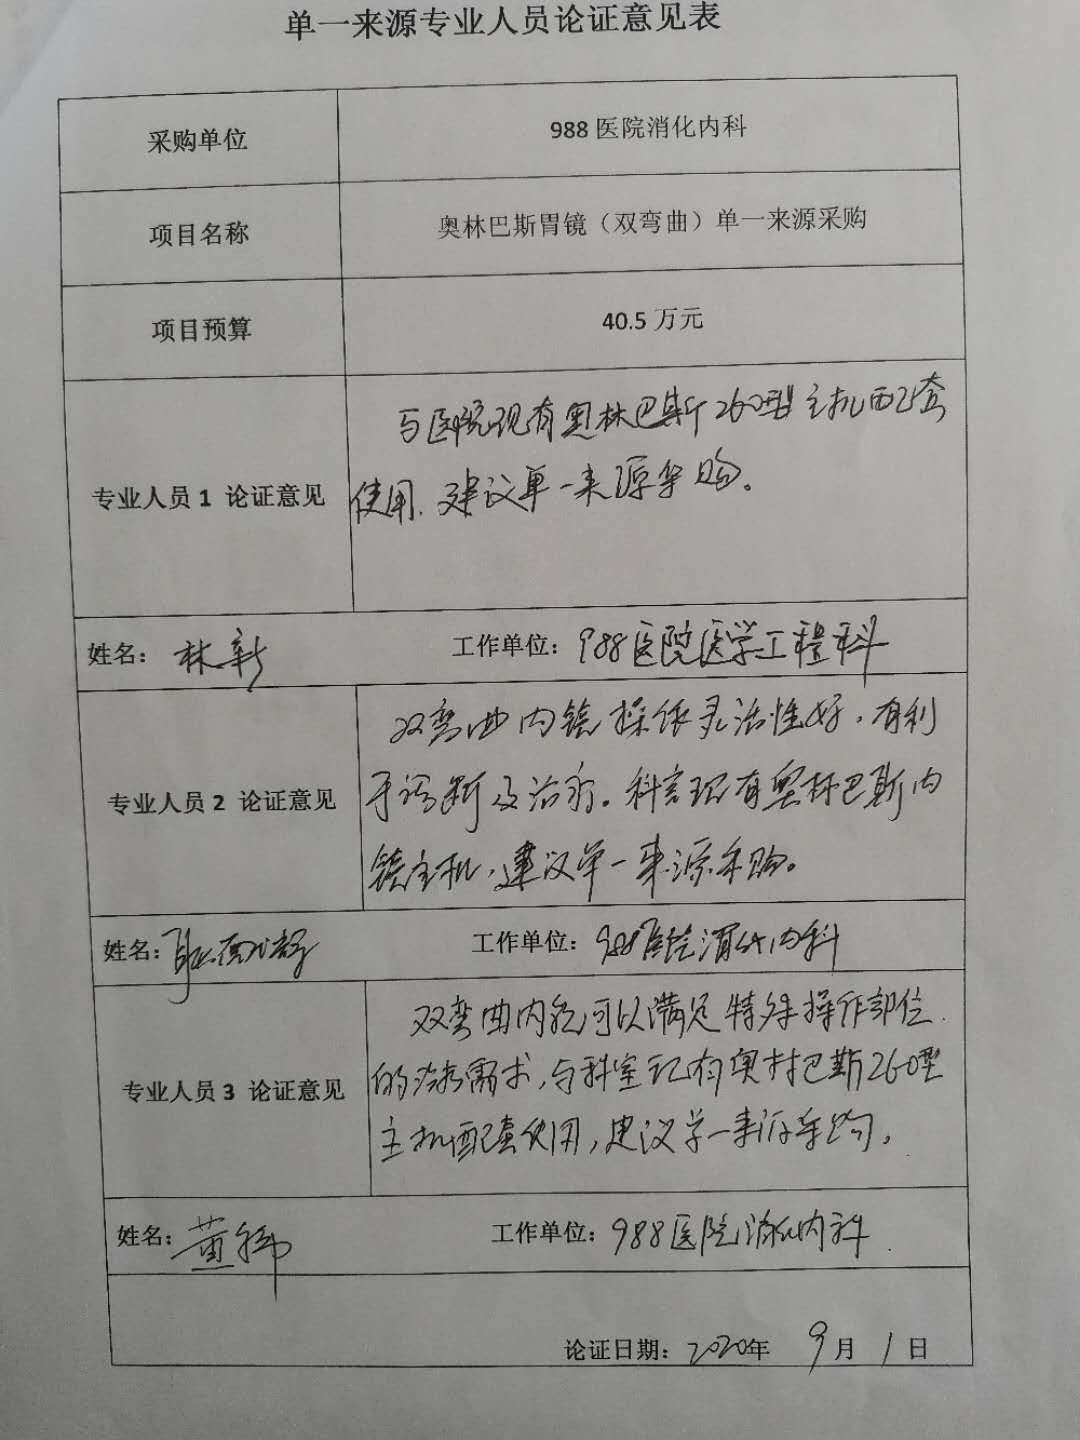 单一来源专业人员论证意见表
采购单位
988 医院消化内科
项目名称
奥林巴斯胃镜（双弯曲）单一来源采购
项目预算
40.5 万元
专业人员 1 论证意见
与医院现有奥林巴斯260型主机配套
使用，建议单一来源采购。
姓名：林新 工作单位：988医院医学工程科
专业人员 2 论证意见
双弯曲内镜操作灵活性好，有利
于诊断及治疗。科室现有奥林巴斯内
镜主机，建议单一来源采购。
姓名： 工作单位：988医院消化内科
专业人员 3 论证意见
双弯曲内镜可以满足特殊操作部位
的治疗需求，与科室现有奥林巴斯260型
主机配套使用，建议单一来源采购。
姓名：黄 工作单位：988医院消化内科
论证日期：2020年 9月 1日